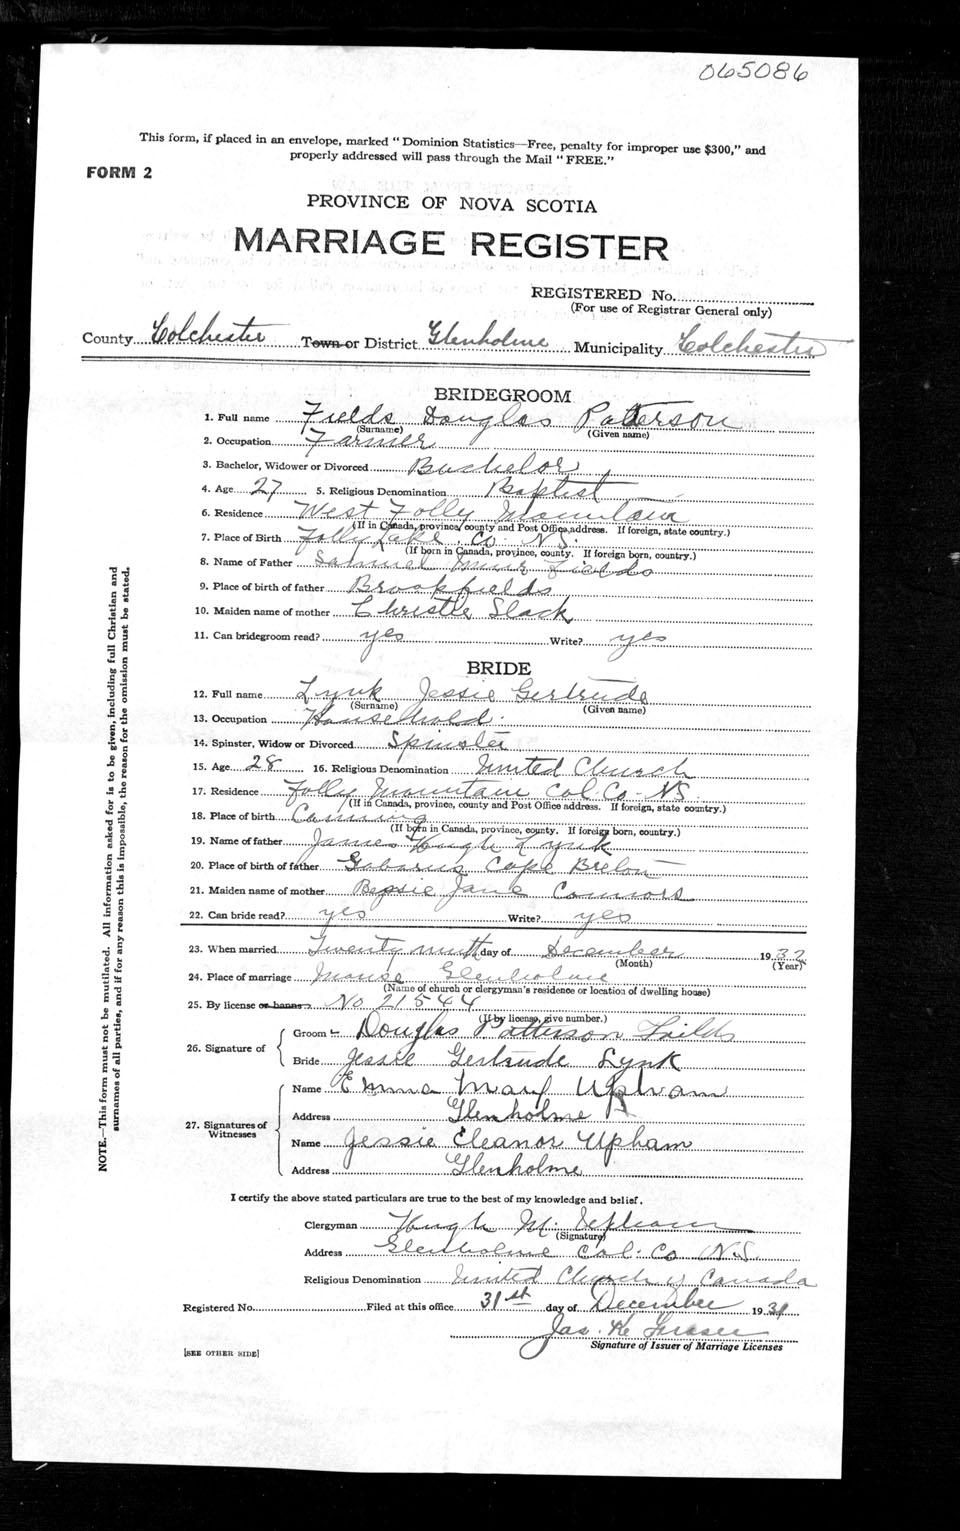 065086
This form, if placed in an envelope, marked "Dominion Statistics—Free, penalty for improper use $300," and
properly addressed will pass through the Mail "FREE."
FORM 2
PROVINCE OF NOVA SCOTIA
MARRIAGE REGISTER
REGISTERED No.
(For use of Registrar General only)
County Colchester Town or District Glenholme Municipality Colchester
BRIDEGROOM
1. Full name Fields Douglas Patterson
(Surname) (Given name)
2. Occupation Farmer
3. Bachelor, Widower or Divorced Bachelor
4. Age 27 5. Religious Denomination Baptist
6. Residence West Folly Mountain
(If in Canada, province, county and Post Office address. If foreign, state country.)
7. Place of Birth Folly Lake, Co. N.S.
(If born in Canada, province, county. If foreign born, country.)
8. Name of Father Samuel Muir Fields
9. Place of birth of father Brookfields
10. Maiden name of mother Christie Slack
11. Can bridegroom read? yes Write? yes
BRIDE
12. Full name Lynk Jessie Gertrude
(Surname) (Given name)
13. Occupation Household.
14. Spinster, Widow or Divorced Spinster
15. Age 28 16. Religious Denomination United Church
17. Residence Folly Mountain Col. Co. N.S.
(If in Canada, province, county and Post Office address. If foreign, state country.)
18. Place of birth Canning
(If born in Canada, province, county. If foreign born, country.)
19. Name of father James Hugh Lynk
20. Place of birth of father Gabarus Cape Breton
21. Maiden name of mother Bessie Jane Connors
22. Can bride read? yes Write? yes
23. When married Twenty ninth day of December 1932
(Month) (Year)
24. Place of marriage Manse Glenholme
(Name of church or clergyman's residence or location of dwelling house)
25. By license or banns No 21544
(If by license, give number.)
26. Signature of Groom Douglas Patterson Fields
Bride Jessie Gertrude Lynk
27. Signatures of Witnesses
Name Emma Mary Upham
Address Glenholme
Name Jessie Eleanor Upham
Address Glenholme
I certify the above stated particulars are true to the best of my knowledge and belief.
Clergyman Hugh M. Upham
(Signature)
Address Glenholme Col. Co N.S.
Religious Denomination United Church of Canada
Registered No. Filed at this office 31st day of December 193
Jas. Fraser
Signature of Issuer of Marriage Licenses
[SEE OTHER SIDE]
NOTE.—This form must not be mutilated. All information asked for is to be given, including full Christian and
surnames of all parties, and if for any reason this is impossible, the reason for the omission must be stated.